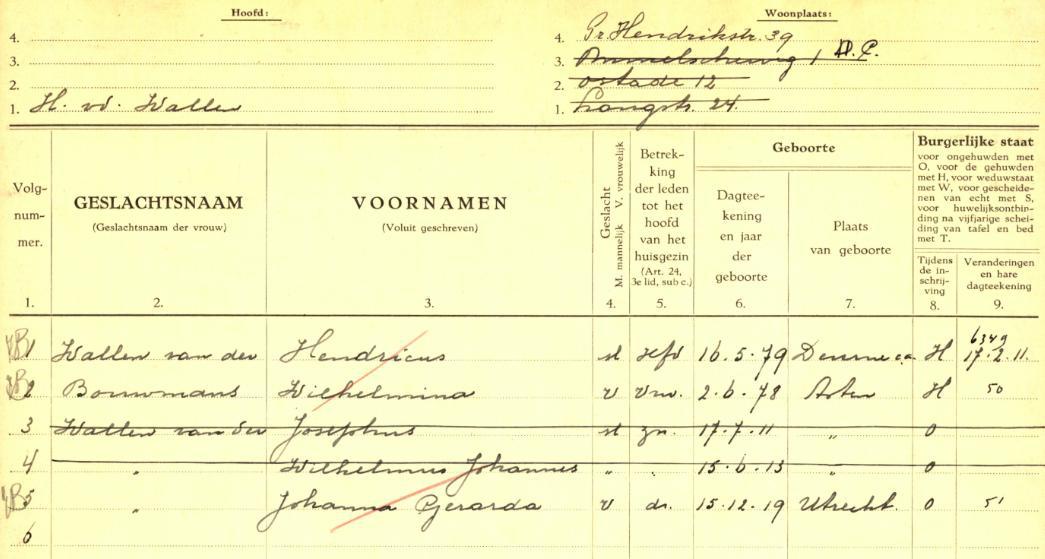 Hoofd:
Woonplaats:
4.
4. Pr. Hendrikstr. 39
3.
3. 1 D.C.
2.
2. Ostade 12
1. H. vd. Wallen
1. Langstr. 24.
Volg-
num-
mer.
GESLACHTSNAAM
(Geslachtsnaam der vrouw)
VOORNAMEN
(Voluit geschreven)
Geslacht
M. mannelijk V. vrouwelijk
Betrek-
king
der leden
tot het
hoofd
van het
huisgezin
(Art. 24,
3e lid, sub c.)
Geboorte
Dagtee-
kening
en jaar
der
geboorte
Plaats
van geboorte
Burgerlijke staat
voor ongehuwden met
O, voor de gehuwden
met H, voor weduwstaat
met W, voor gescheide-
nen van echt met S,
voor huwelijksontbin-
ding na vijfjarige schei-
ding van tafel en bed
met T.
Tijdens
de in-
schrij-
ving
Veranderingen
en hare
dagteekening
1. 2. 3. 4. 5. 6. 7. 8. 9.
6349
1 Wallen van der Hendricus Hfd 16.5.79 Deurne ca H 17.2.11.
2 Bouwmans Wilhelmina v Vrw. 2.6.78 Asten H 50
3 Wallen van der Josephus zn. 17.7.11 „ O
4 „ Wilhelmus Johannes „ 15.6.13 „ O
5 „ Johanna Gerarda v dr. 15.12.19 Utrecht. O 51
6